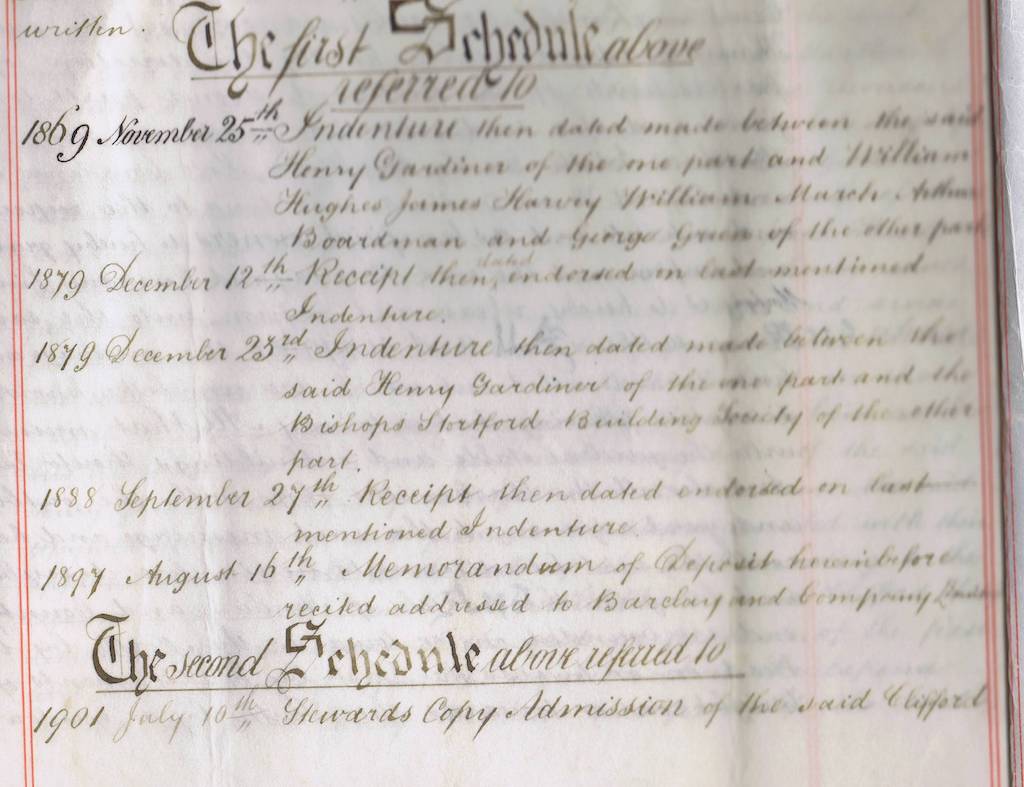 written.
The first Schedule above
referred to
1869 November 25th Indenture then dated made between the said
Henry Gardiner of the one part and William
Hughes James Harvey William March Arthur
Boardman and George Green of the other part
1879 December 12th Receipt then dated endorsed on last mentioned
Indenture.
1879 December 23rd Indenture then dated made between the
said Henry Gardiner of the one part and the
Bishops Stortford Building Society of the other
part.
1888 September 27th Receipt then dated endorsed on last
mentioned Indenture.
1897 August 16th Memorandum of Deposit hereinbefore
recited addressed to Barclay and Company Limited
The second Schedule above referred to
1901 July 10th Stewards Copy Admission of the said Clifford